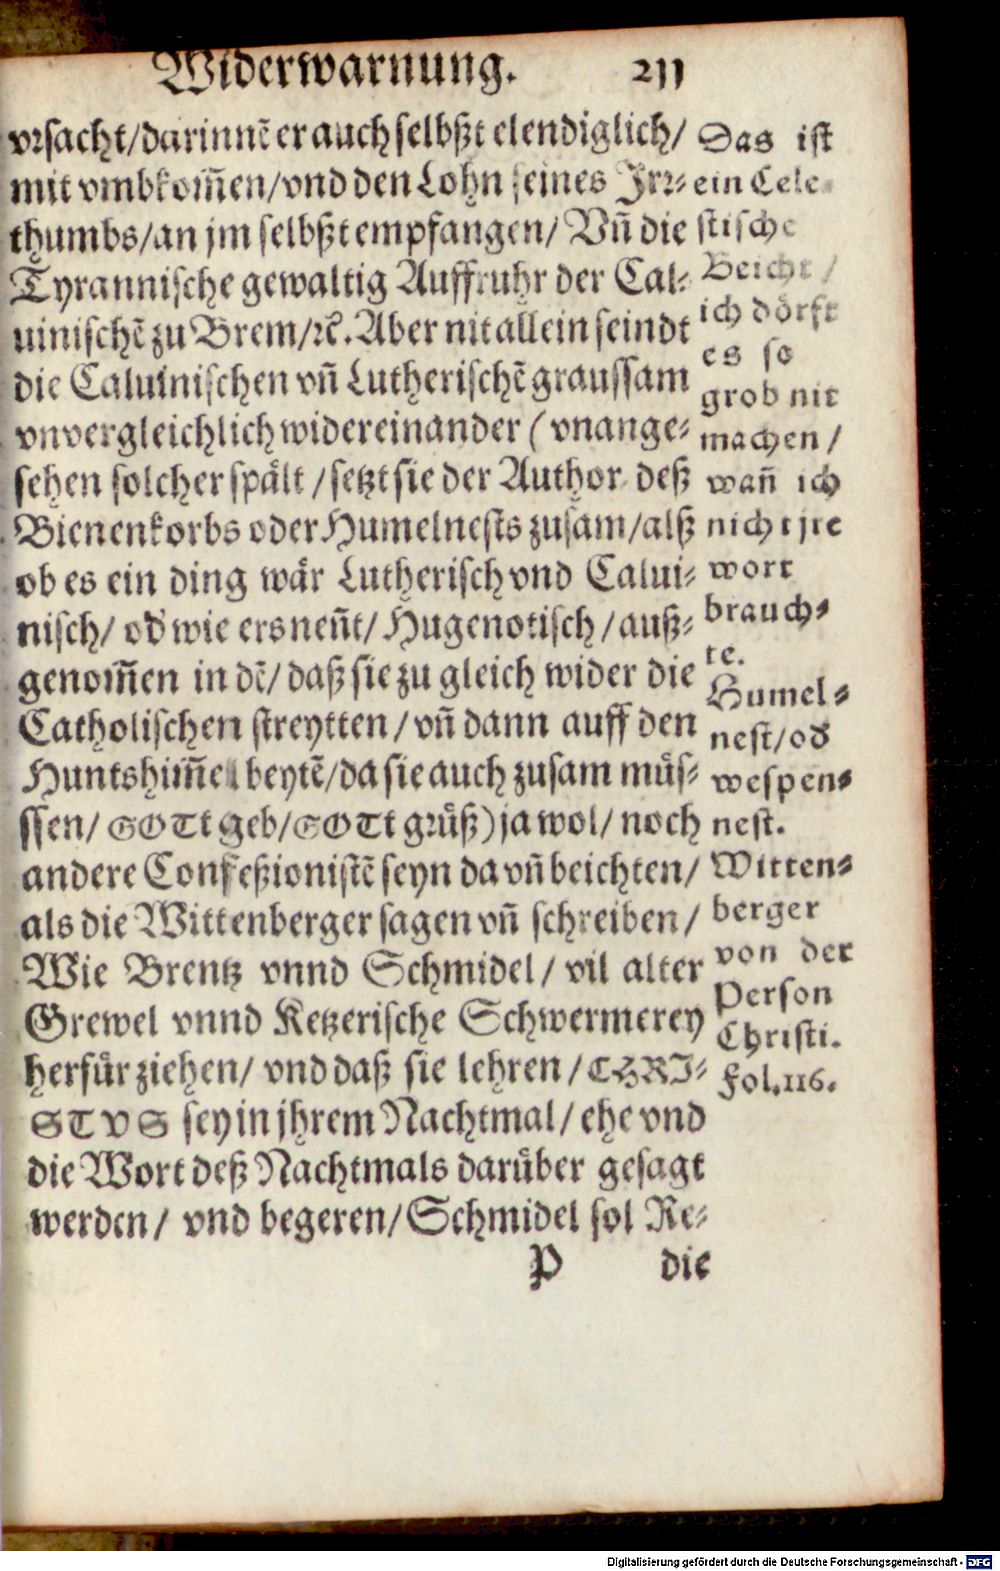 Widerwarnung. 211
vrsacht/darinnē er auch selbßt elendiglich/
mit vmbkom̃en/vnd den Lohn seines Irr⸗
thumbs/an jm selbßt empfangen/ Vñ die
Tyrannische gewaltig Auffruhr der Cal⸗
uinischē zu Brem/ꝛc̃. Aber nit allein seindt
die Caluinischen vñ Lutherischē graussam
vnvergleichlich widereinander (vnange⸗
sehen solcher spält/setzt sie der Author deß
Bienenkorbs oder Humelnests zusam/alß
ob es ein ding wär Lutherisch vnd Calui⸗
nisch/ od' wie ers nen̄t/ Hugenotisch/auß⸗
genom̃en in dē/ daß sie zu gleich wider die
Catholischen streytten/vñ dann auff den
Huntshim̃el beytē/da sie auch zusam müs⸗
ssen/ GOTt geb/GOTt grüß) ja wol/ noch
andere Confeßionistē seyn da vñ beichten/
als die Wittenberger sagen vñ schreiben/
Wie Brentz vnnd Schmidel/ vil alter
Grewel vnnd Ketzerische Schwermerey
herfür ziehen/ vnd daß sie lehren/CHRI⸗
STVS sey in jhrem Nachtmal/ ehe vnd
die Wort deß Nachtmals darüber gesagt
werden/ vnd begeren/Schmidel sol Re⸗
P die
Das ist
ein Cele⸗
stische
Beicht/
ich dörft
es so
grob nit
machen/
wañ ich
nicht jre
wort
brauch⸗
te.
Humel⸗
nest/od'
wespen⸗
nest.
Witten⸗
berger
von der
Person
Christi.
Fol.116.
Digitalisierung gefördert durch die Deutsche Forschungsgemeinschaft - DFG